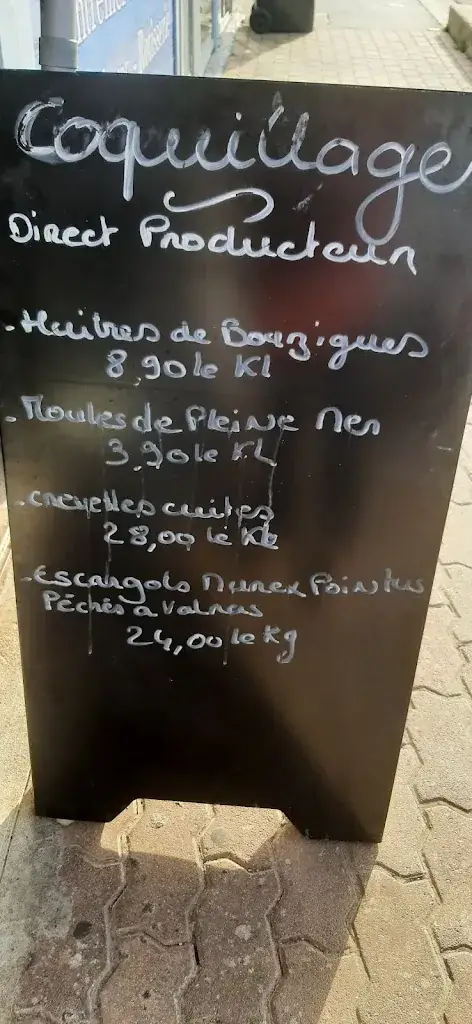 Coquillage
Direct Producteur
- Huitres de Bouzigues
8,90 le Kl
- Moules de Pleine Mer
3,90 le KL
- crevettes cuites
28,00 le Kg
- Escargots Murex Pointus
Péchés a Valras
24,00 le Kg